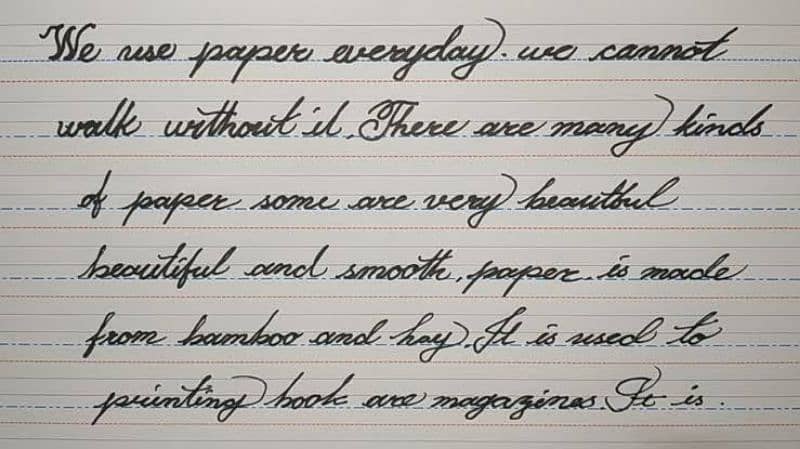 We use paper everyday. we cannot
walk without it. There are many kinds
of paper some are very beautiful
beautiful and smooth, paper is made
from bamboo and hay. It is used to
printing book are magazines. It is.